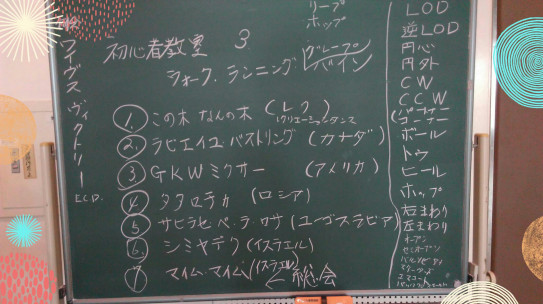 リープ
ホップ
初心者教室 3
ウォーク. ランニング グレープバイン
① この木 なんの木 (レク)
レクリエーションダンス
② ラビエイユ バストリング (カナダ)
③ GKWミクサー (アメリカ)
④ タタロチカ (ロシア)
⑤ サヒラセ ペ. テ ロサ (ユーゴスラビア)
⑥ シミヤデク (イスラエル)
⑦ マイム・マイム (イスラエル) ← 総会
ヴィクトリー
E.C.D.
LOD
逆LOD
円心
円外
CW
CCW
パートナー
コーナー
ボール
トゥ
ヒール
ホップ
右まわり
左まわり
オープン
セミオープン